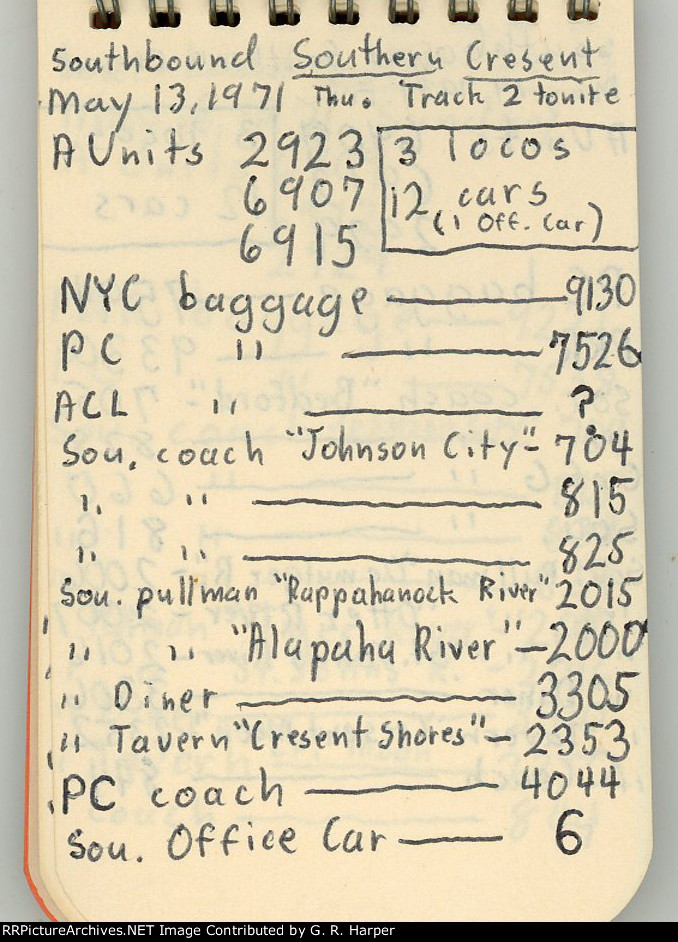 Southbound Southern Cresent
May 13, 1971 Thu. Track 2 tonite
A Units 2923 3 locos
6907 12 cars
6915 (1 Off. Car)
NYC baggage — 9130
PC " — 7526
ACL " — ?
Sou. coach "Johnson City" - 704
" " — 815
" " — 825
Sou. pullman "Rappahanock River" 2015
" " "Alapaha River" — 2000
" Diner — 3305
" Tavern "Cresent Shores" — 2353
PC coach — 4044
Sou. Office Car — 6
RRPictureArchives.NET Image Contributed by G. R. Harper